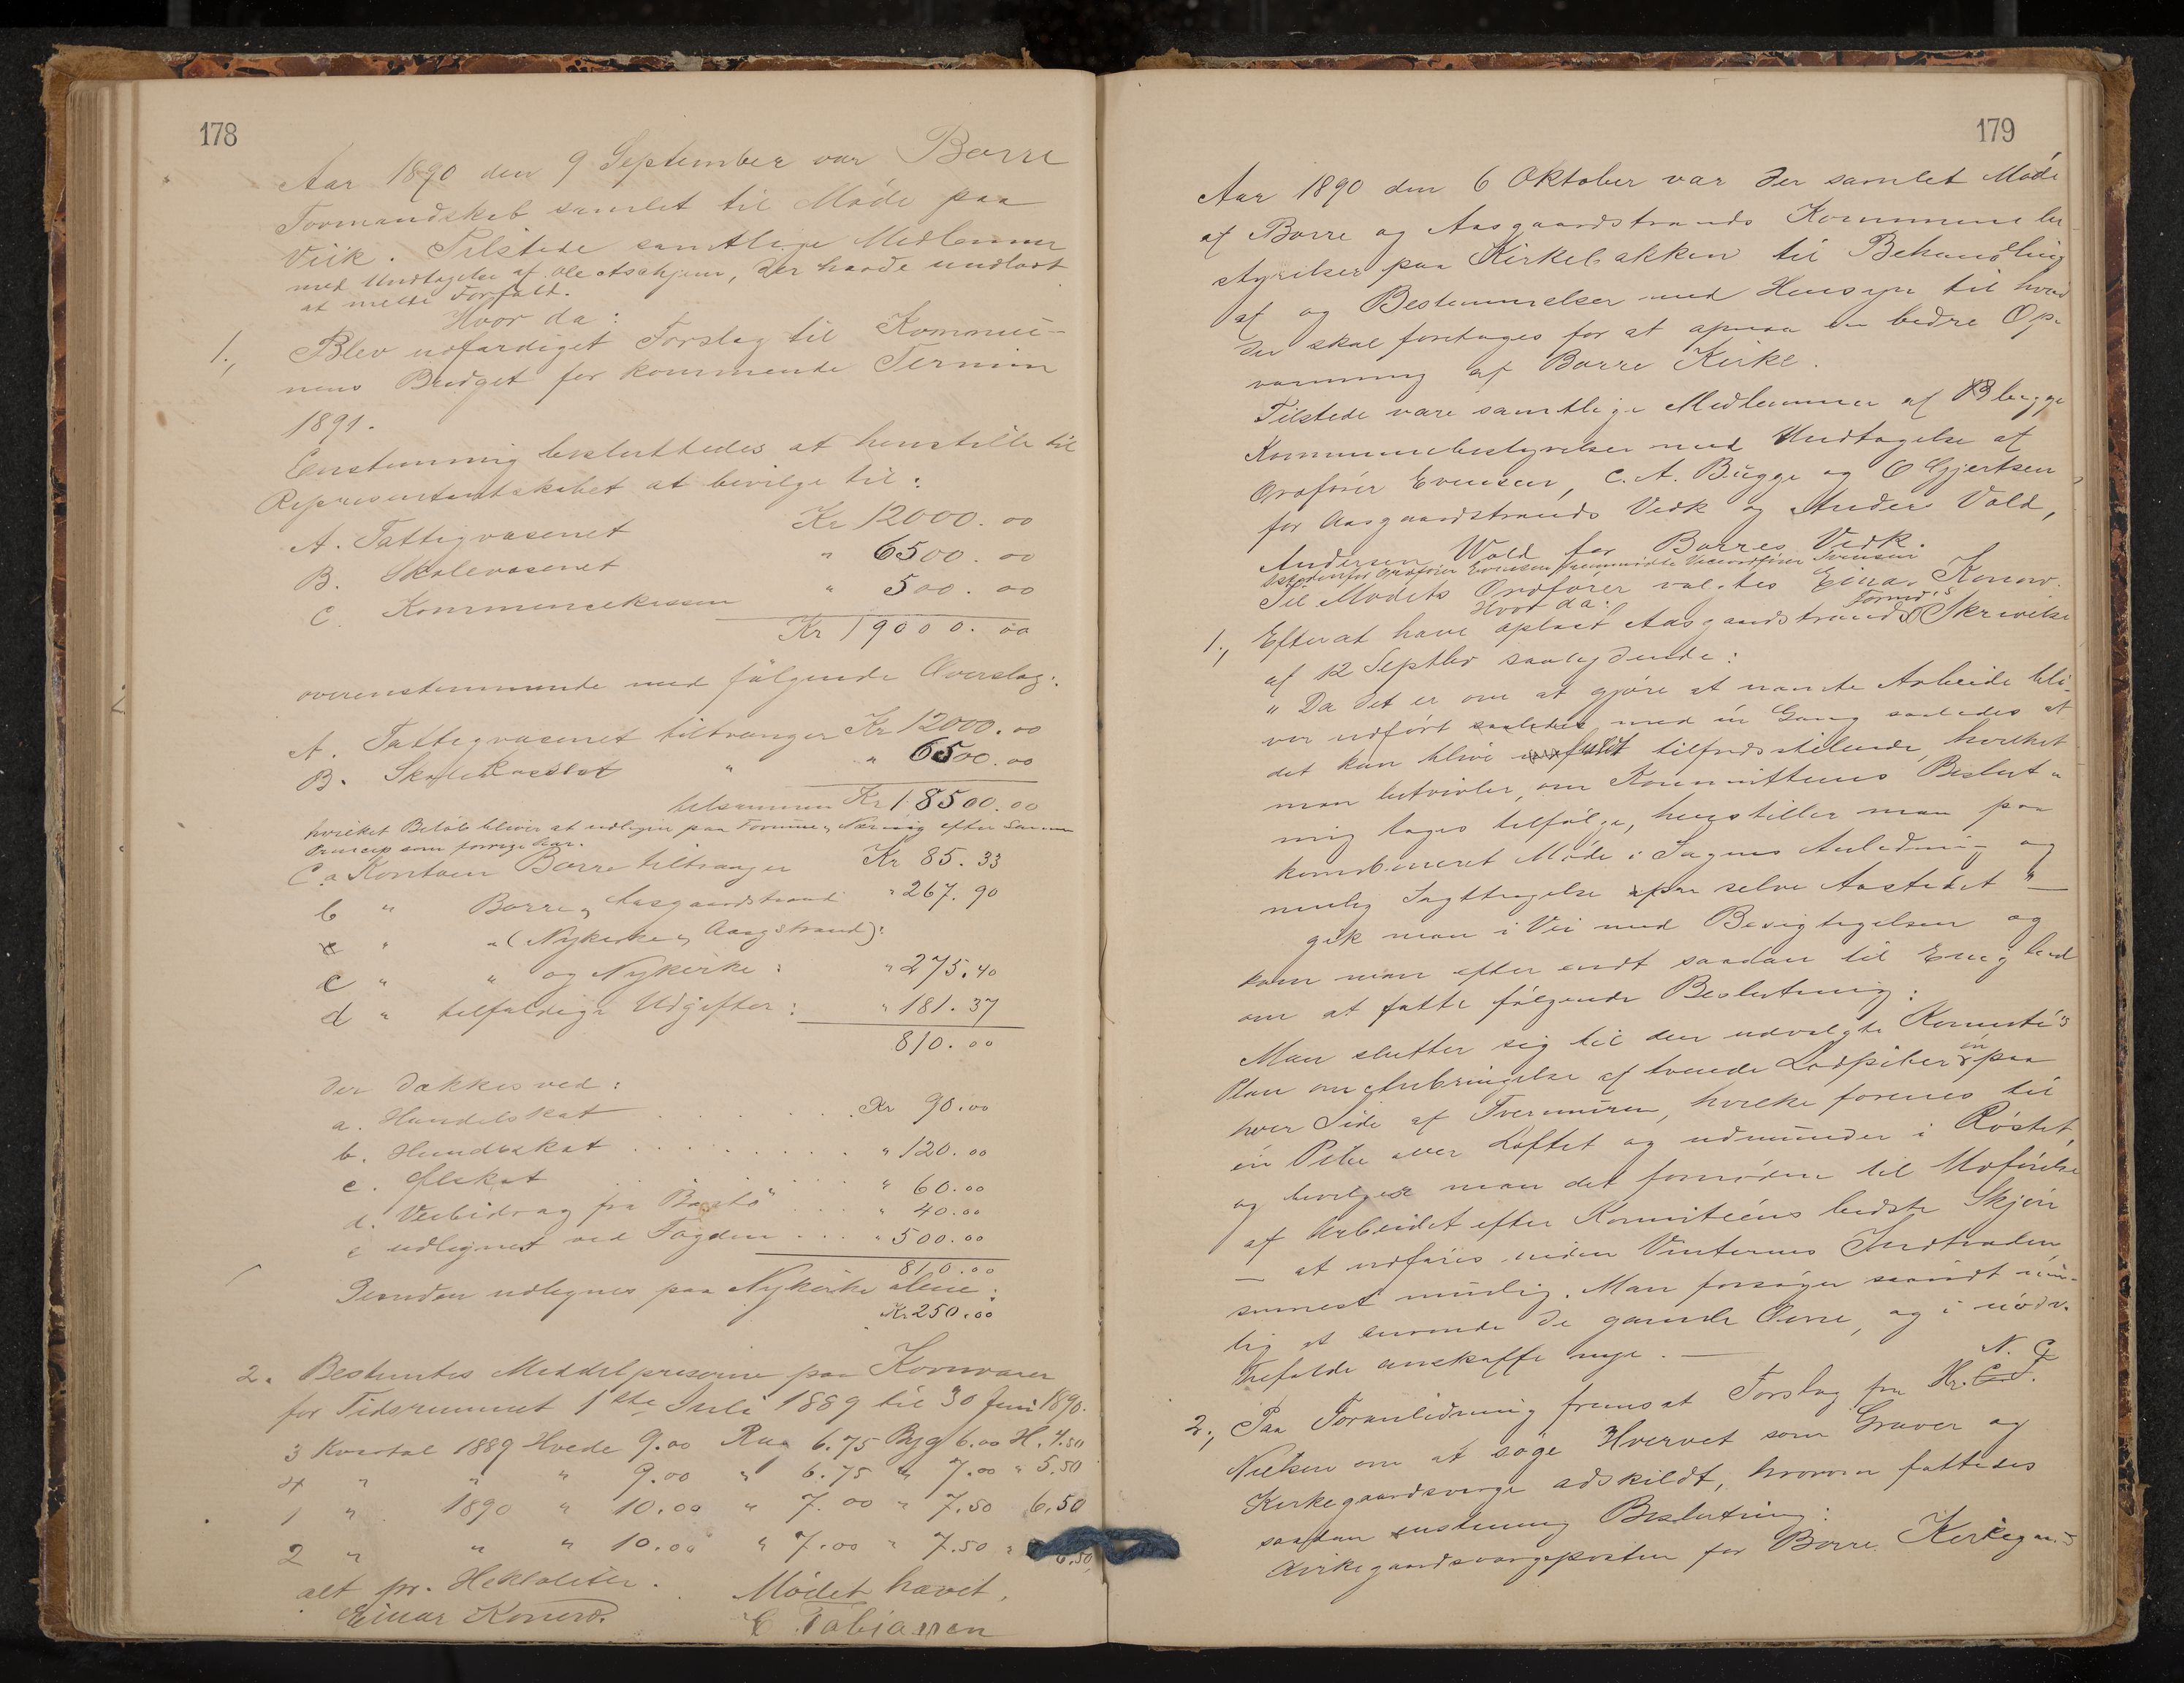 178
Aar 1890 den 9 September var Borre
Formandskab samlet til Møde paa
Viik. Tilstede samtlige Medlemmer
med Undtagelse af Ole Aschjem, der havde undladt
at melde Forfald.
Hvor da:
1., Blev udfærdiget Forslag til Kommu-
nens Budget for kommende Termin
1891.
Enstemmig besluttedes at henstille til
Representantskabet at bevilge til:
A. Fattigvæsenet Kr 12000.00
B. Skolevæsenet " 6500.00
C. Kommunekassen " 500.00
Kr 19000.00
overenstemmende med følgende Overslag:
A. Fattigvæsenet tiltrænger Kr 12000.00
B. Skolekassen " " 6500.00
tilsammen Kr 18500.00
hvilket Beløb bliver at udligne paa Formue og Næring efter samme
Princip som forrige Aar.
C.a Kontoen Borre tiltrænger Kr 85.33
b " Borre og Aasgaardstrand " 267.90
c " " (Nykirke og Aasgstrand):
c " " og Nykirke: " 275.40
d " tilfældige Udgifter: " 181.37
810.00
der dækkes ved:
a. Handelskat Kr 90.00
b. Hundeskat " 120.00
c. Ølskat " 60.00
d. Veibidrag fra "Bastø" " 40.00
e udlignet ved Fogden " 500.00
810.00
Desuden udlignes paa Nykirke alene:
Kr 250.00
2. Bestemtes Middelpriserne paa Kornvarer
for Tidsrummet 1ste Juli 1889 til 30 Juni 1890.
3 Kvartal 1889 Hvede 9.00 Rug 6.75 Byg 6.00 H. 4.50
4 " " " 9.00 " 6.75 " 7.00 " 5.50
1 " 1890 " 10.00 " 7.00 " 7.50 6.50
2 " " " 10.00 " 7.00 " 7.50 " 6.50
alt pr. Hektoliter. Mødet hævet.
Einar Konow. C. Fabiansen
179
Aar 1890 den 6 Oktober var der samlet Møde
af Borre og Aasgaardstrands Kommunebe
styrelser paa Kirkebakken til Behandling
af og Bestemmelser med Hensyn til hvad
der skal foretages for at opnaa en bedre Op-
varmning af Borre Kirke.
Tilstede vare samtlige Medlemmer af begge
Kommunebestyrelser med Undtagelse af
Ordfører Evensen, C. A. Bugge og O Gjertsen,
for Aasgaardstrands Vedk og Anders Vold,
Andersen Wold for Borres Vedk.
Istedenfor Ordfører Evensen fremmødte Viceordfører Svensen
Til Mødets Ordfører valgtes Einar Konow.
Hvor da:
1., Efterat have oplæst Aasgaardstrands Formd's Skrivelse
af 12 Septbr saalydende:
"Da det er om at gjøre at nævnte Arbeide bli-
ver udført saaledes med én Gang saaledes at
det kan blive fuldt tilfredsstillende, hvilket
man betvivler, om Kommitteens Beslut-
ning tages tilfølge, henstiller man paa
kombineret Møde i Sagens Anledning og
mulig Iagttagelse paa selve Aastedet" —
gik man i Vei med Besigtigelsen og
kom man efter endt saadan til Enighed
om at fatte følgende Beslutning:
Man slutter sig til den udvalgte Komite's
Plan om Anbringelse af tvende Lodpiber én paa
hver Side af Tvermuren, hvilke forenes til
én Pibe over Loftet og udmunder i Røstet,
og bevilger man det fornødne til Udførelse
af Arbeidet efter Komiteéns bedste Skjøn
— at udføres inden Vinterens Indtræden
snarest mulig. Man forsøger saavidt mu-
lig at anvende de gamle Ovne, og i nøds-
tilfælde anskaffe nye. —
2., Paa Foranledning fremsat Forslag fra Hr. N. G.
Nielsen om at søge Hvervet som Graver og
Kirkegaardsverge adskildt, hvorom fattedes
saadan enstemmig Beslutning:
Kirkegaardsvergeposten for Borre Kirkegaard